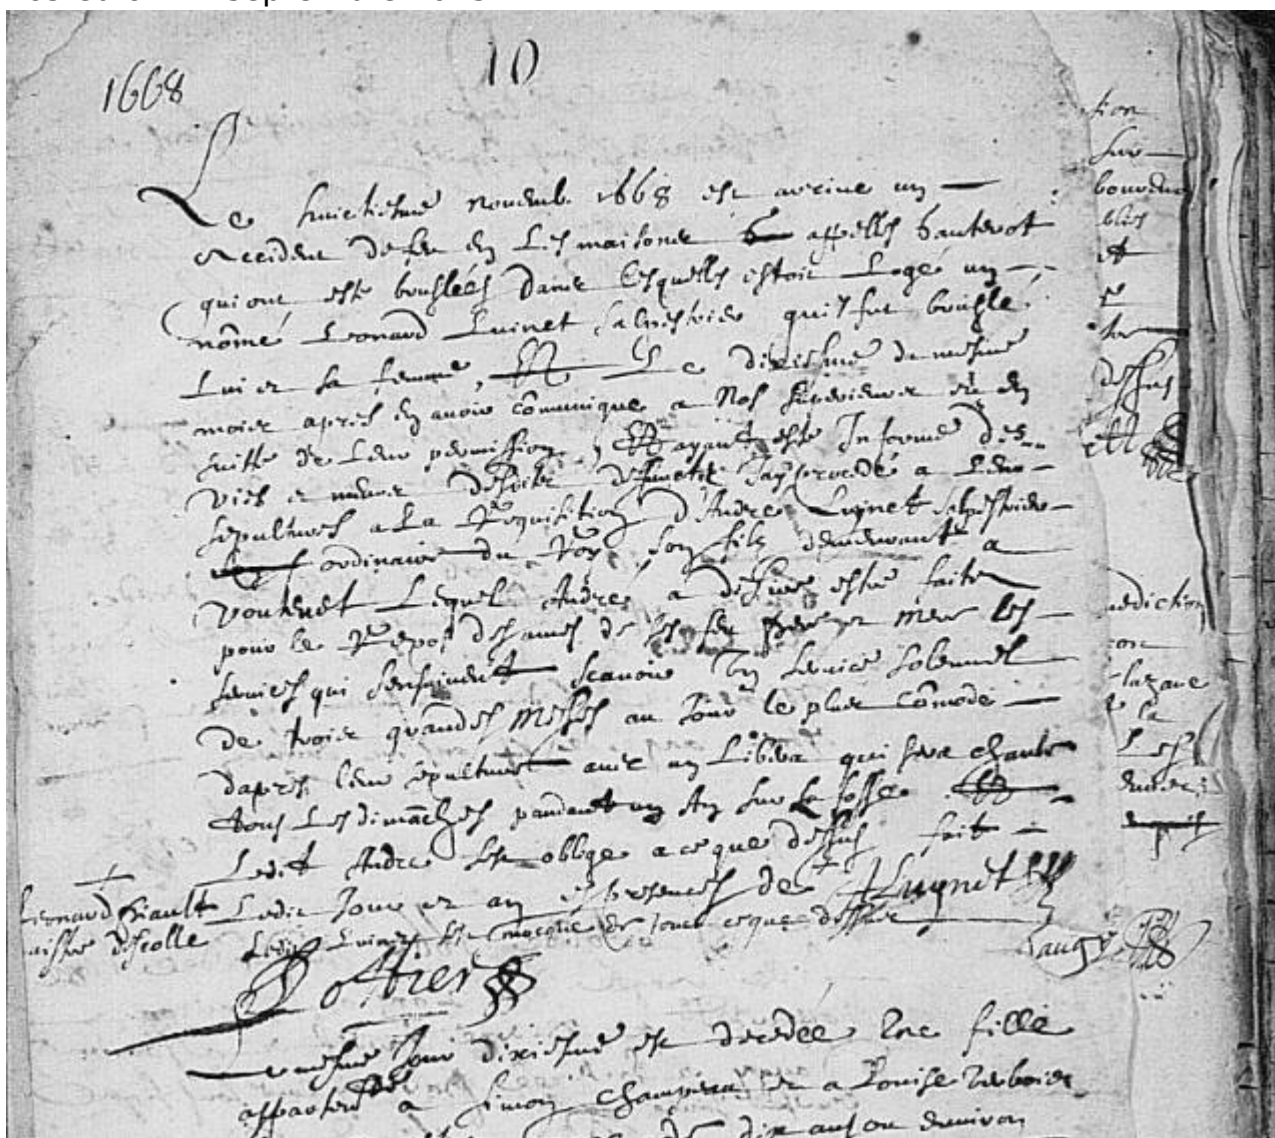 1668
10
Le huictiesme Novemb. 1668 est arrivé un
accident de feu en les maisons appellés hauterot
qui ont esté bruslées dans lesquelles estoit Logé un
nōmé Leonard Luinet salpestrier qui fut bruslé
Lui et sa femme, Le dixiesme du mesme
mois apres en avoir cōmuniqué a Nos superieurs et en
suitte de Leur permission, Et ayant esté Informé des
vies et meurs desdits deffuncts Jay procedé a Leur
sepultures a La Requisition d'André Luynet salpestrier
ordinaire du Roy, son filz demeurant a
voutenet Lequel André a desiré estre faite
pour le Repos des ames de ses feu pere et mere les
services qui sensuivent scavoir Un service solennel
de trois grandes Messes au Jour le plus cōmode
dapres leur sepulture avec un Libera qui sera chanté
tous Les dimanches pendant un An sur La fosse
Ledit André sest obligé a ce que dessus fait
Ledit Jour et an es presences de ALuynet
Bernard hiault
maistre descolle
Ledit Luinet sest mocqué de tout ce que dessus
Pottier
Laugy
mesme Jour dixiesme est decedée Une fille
appartenant a Simon et a Louise
dix ans ou environ
tion
sur
et
dessus
nediction
la
Les